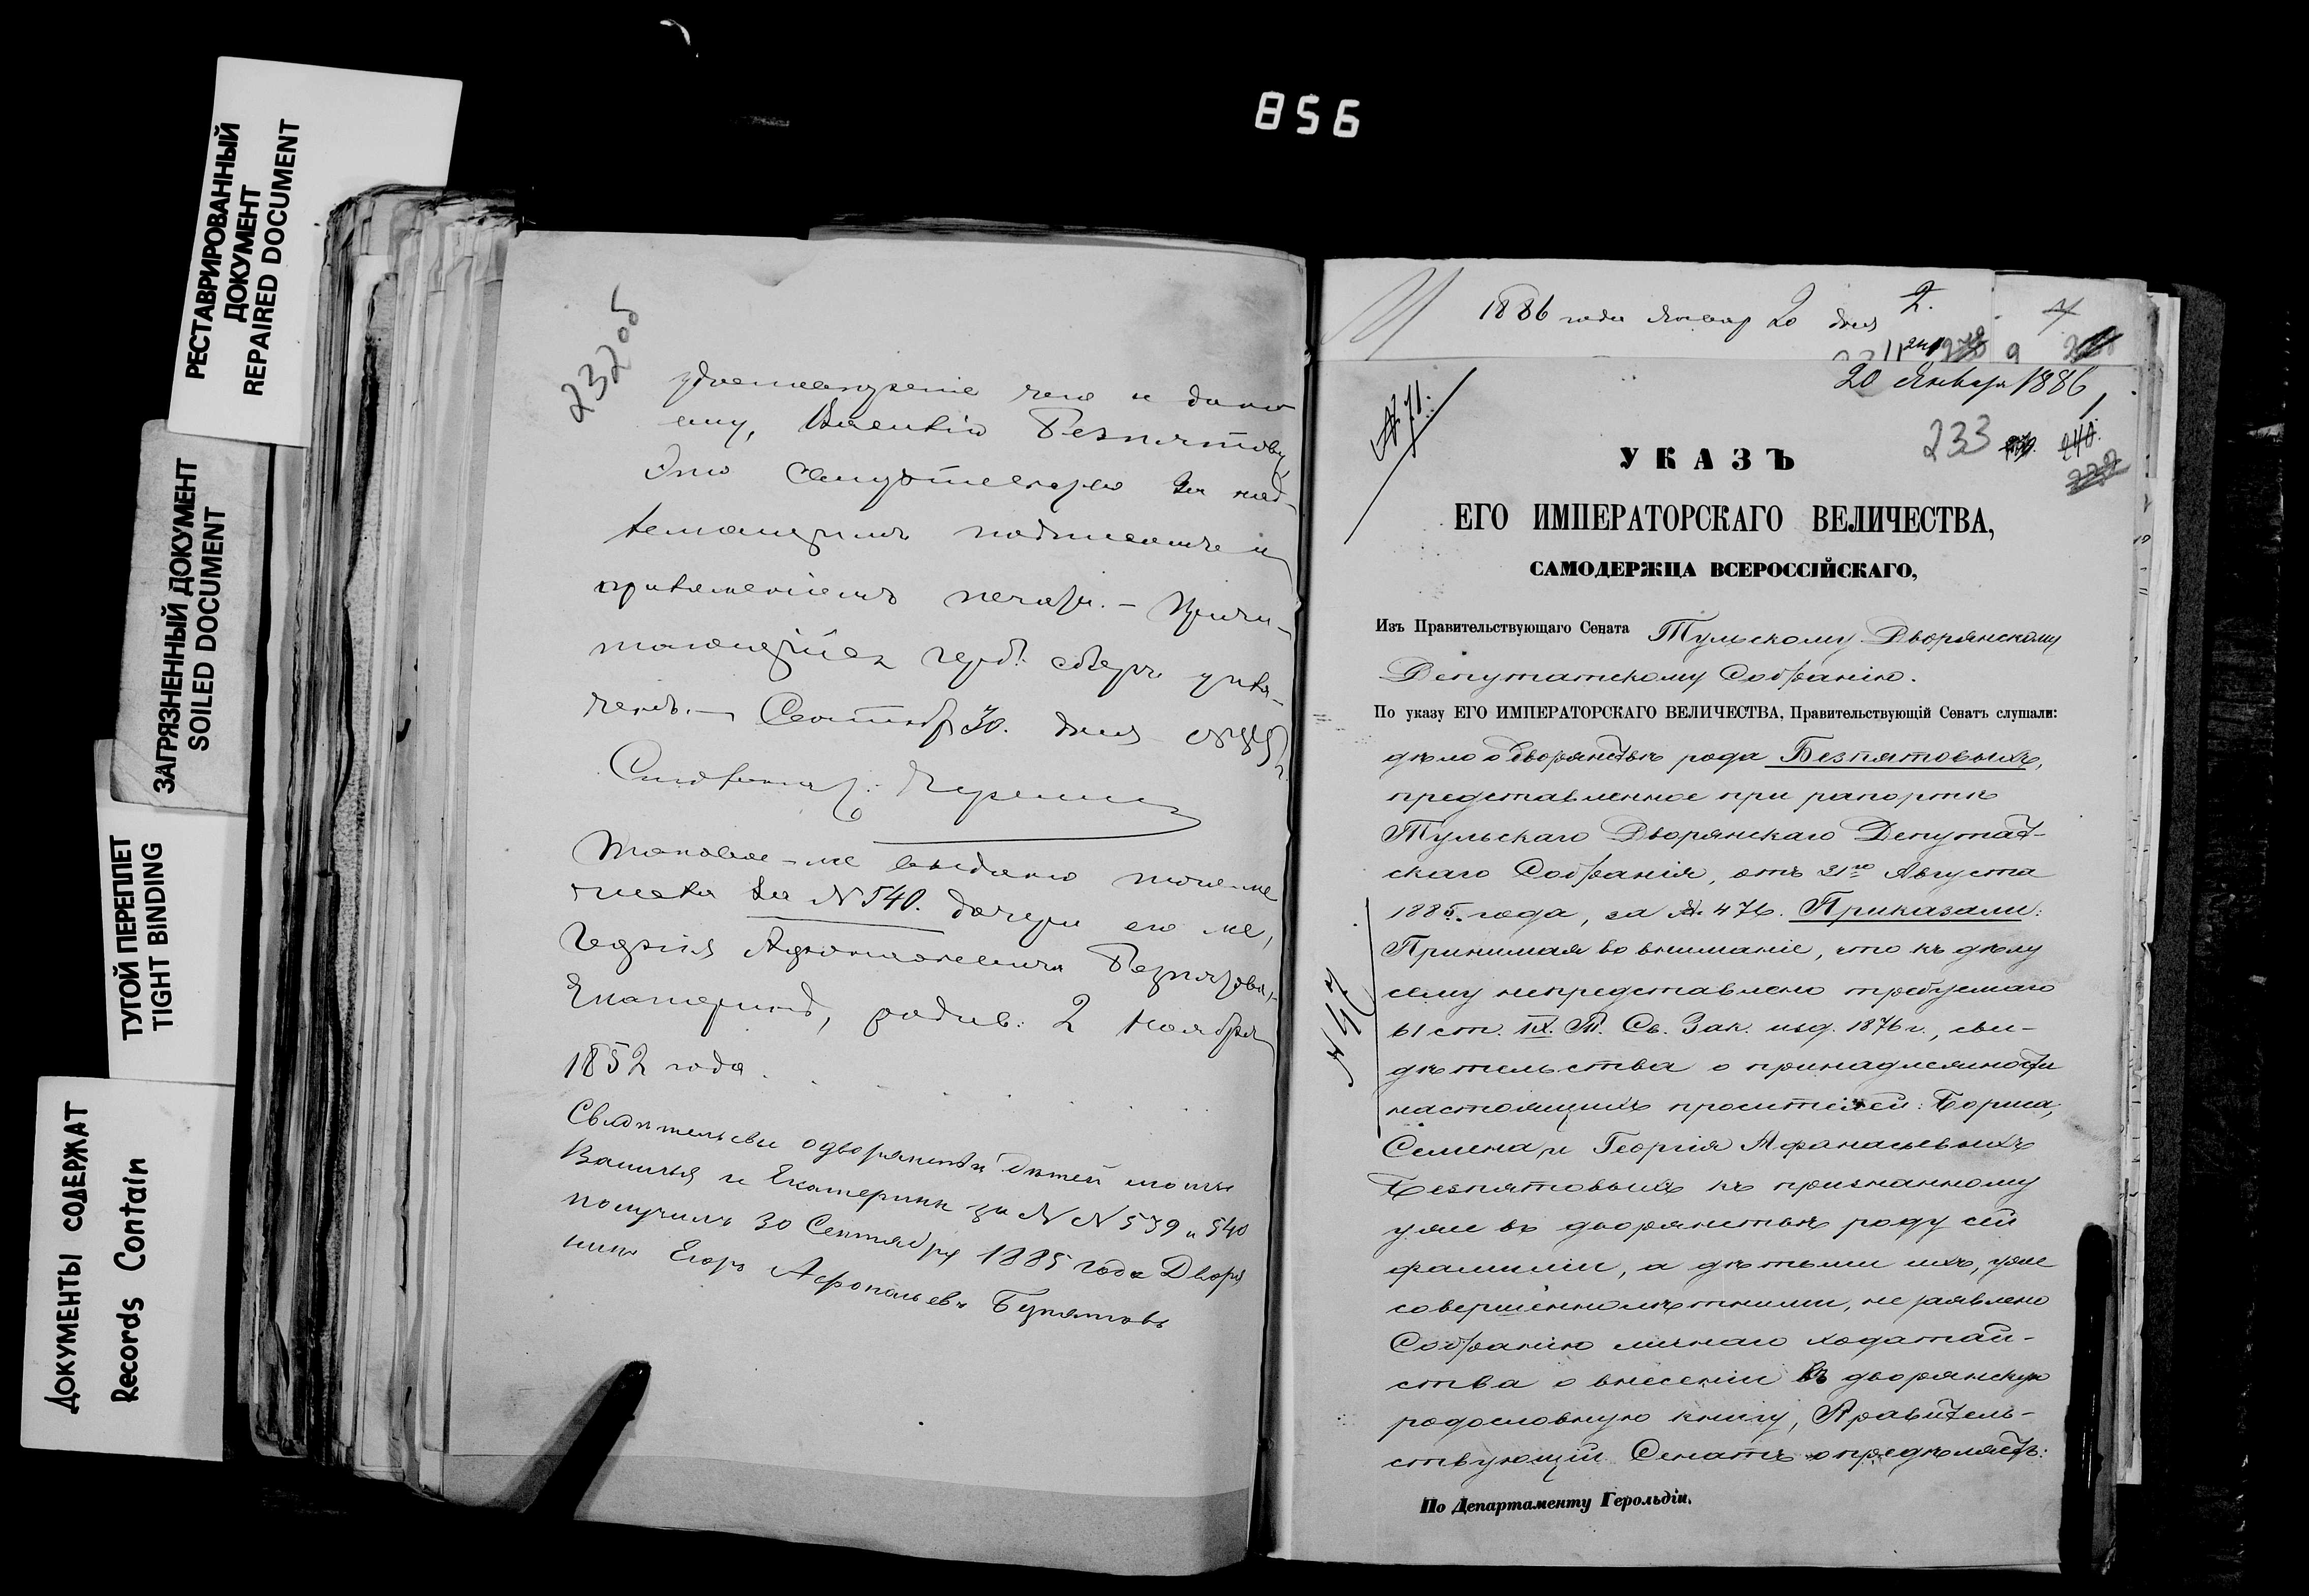 856
РЕСТАВРИРОВАННЫЙ
ДОКУМЕНТ
REPAIRED DOCUMENT
ЗАГРЯЗНЕННЫЙ ДОКУМЕНТ
SOILED DOCUMENT
ТУГОЙ ПЕРЕПЛЕТ
TIGHT BINDING
ДОКУМЕНТЫ СОДЕРЖАТ
Records Contain
232 об
чего и дано
ему, Василію Безпятову
Это свидѣтельство за над-
лежащимъ подписомъ и
приложеніемъ печати. – Причи-
тающійся герб. сборъ упла-
ченъ. – Сентябр 30. дня 1885 г.
Таковое-же выдано того-же
числа за № 540. дочери его же,
Георгія Афонасьевича Безпятова,
Екатеринѣ, родив: 2 Ноября
1852 года.
Свидѣтельствы о дворянствѣ дѣтей моихъ
Василья и Екатерины за № № 539 и 540
получилъ 30 Сентября 1885 года Дворя
нинъ Егоръ Афонасьевъ Безпятовъ
1886 года Январ 20 дня 2.
20 Января 1886
№ 71.
233
240.
УКАЗЪ
ЕГО ИМПЕРАТОРСКАГО ВЕЛИЧЕСТВА,
САМОДЕРЖЦА ВСЕРОССІЙСКАГО,
Изъ Правительствующаго Сената Тульскому Дворянскому
Депутатскому Собранію.
По указу ЕГО ИМПЕРАТОРСКАГО ВЕЛИЧЕСТВА, Правительствующій Сенатъ слушали:
дѣло о дворянствѣ рода Безпятовыхъ,
представленное при рапортѣ
Тульскаго Дворянскаго Депутат-
скаго Собранія, отъ 21го Августа
1885 года, за № 476. Приказали:
Принимая во вниманіе, что къ дѣлу
сему непредставлено требуемаго
61 ст. IX. Т. Св. Зак. изд. 1876 г., сви-
дѣтельства о принадлежности
настоящихъ просителей: Бориса,
Семена и Георгія Афанасьевыхъ
Безпятовыхъ къ признанному
уже въ дворянствѣ роду сей
фамиліи, а дѣтьми ихъ, уже
совершеннолѣтними, не заявлено
Собранію личнаго ходатай-
ства о внесеніи въ дворянскую
родословную книгу, Правитель-
ствующій Сенатъ опредѣляетъ:
По Департаменту Герольдіи.